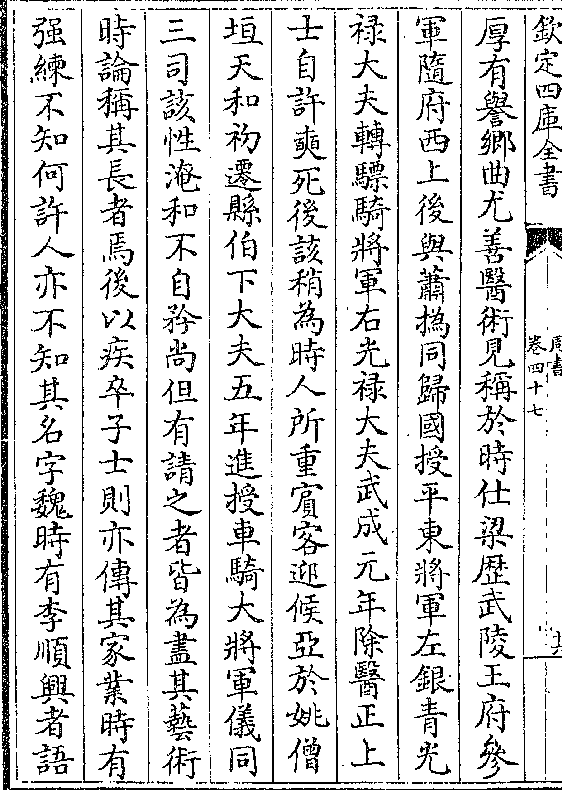 欽定四庫全書
周書
卷四十七
厚有譽鄉曲尤善醫術見稱於時仕梁歷武陵王府參
軍隨府西上後與蕭撝同歸國授平東將軍左銀青光
禄大夫轉驃騎將軍右光禄大夫武成元年除醫正上
士自許奭死後該稍為時人所重賔客迎候亞於姚僧
垣天和初遷縣伯下大夫五年進授車騎大將軍儀同
三司該性淹和不自矜尚但有請之者皆為盡其藝術
時論稱其長者焉後以疾卒子士則亦傳其家業時有
强練不知何許人亦不知其名字魏時有李順興者語